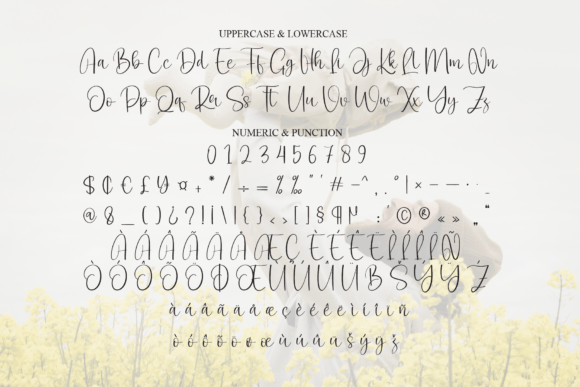 UPPERCASE & LOWERCASE
Aa Bb Cc Dd Ee Ff Gg Hh Ii Jj Kk Ll Mm Nn
Oo Pp Qq Rr Ss Tt Uu Vv Ww Xx Yy Zz
NUMERIC & PUNCTION
0 1 2 3 4 5 6 7 8 9
$ ₵ € £ ¥ ¤ + * / ÷ = % ‰ " ' # – ^ ¸ . ° | × – — · .. _
@ & _ ( ) ¿ ? ! ¡ \ | { } < > [ ] § ¶ : ' © ® « » „ “
À Á Â Ã Ä Å Æ Ç È É Ê Ë Ì Í Î Ï Ñ
Ò Ó Ô Õ Ö Ø Œ Ù Ú Û Ü ß Š Ý Ÿ Ž
à á â ã ä å æ ç è é ê ë ì í î ï ñ
ò ó ô õ ö ø œ ù ú û ü š ý ÿ ž